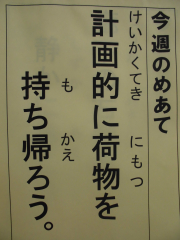 今週のめあて
けいかくてき にもつ
計画的に荷物を
も かえ
持ち帰ろう。